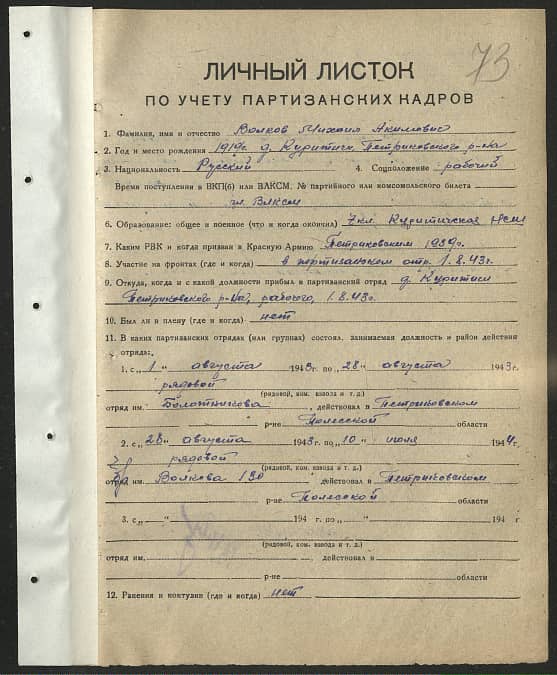 73
ЛИЧНЫЙ ЛИСТОК
ПО УЧЕТУ ПАРТИЗАНСКИХ КАДРОВ
1. Фамилия, имя и отчество Волков Михаил Акимович
2. Год и место рождения 1919г. д. Куритичи Петриковского р-на
3. Национальность Русский 4. Соцположение рабочий
Время поступления в ВКП(б) или ВЛКСМ, № партийного или комсомольского билета
чл. Влксм
6. Образование: общее и военное (что и когда окончил) 7 кл. Куритичская Нсш
7. Каким РВК и когда призван в Красную Армию Петриковским 1939г.
8. Участие на фронтах (где и когда) в партизанском отр. 1.8.43г.
9. Откуда, когда и с какой должности прибыл в партизанский отряд д. Куритичи
Петриковского р-на, рабочего, 1.8.43г.
10. Был ли в плену (где и когда) нет
11. В каких партизанских отрядах (или группах) состоял, занимаемая должность и район действия
отряда:
1. с „1“ августа 1943 г. по „28“ августа 1943 г.
рядовой
(рядовой, ком. взвода и т. д.)
отряд им. Болотникова, действовал в Петриковском
р-не Полесской области
2. с „28“ августа 1943 г. по „10“ июля 1944 г.
рядовой
(рядовой, ком. взвода и т. д.)
отряд им. Волкова 130 действовал в Петриковском
р-не Полесской области
3. с „ “ 194 г. по „ “ 194 г
(рядовой, ком. взвода и т. д.)
отряд им. действовал в
р-не области
12. Ранения и контузии (где и когда) нет